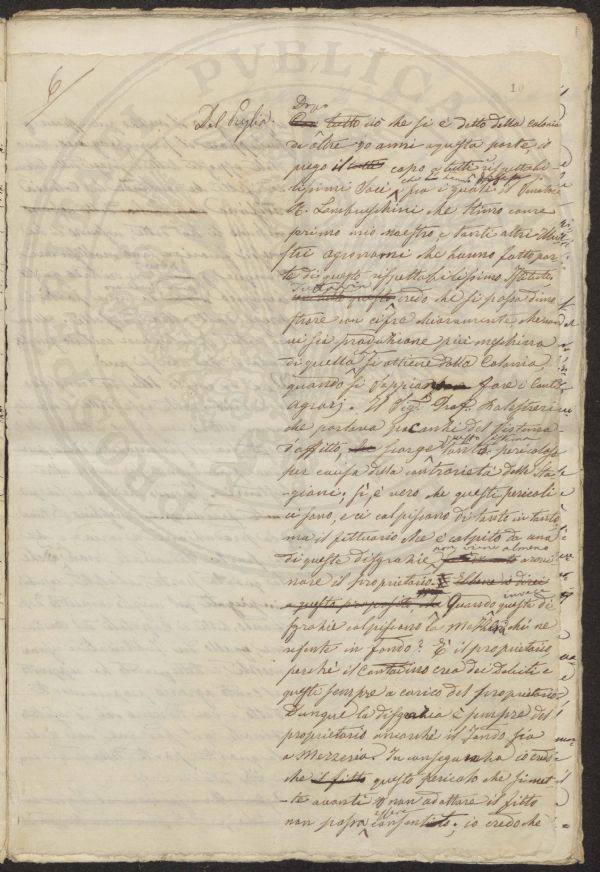 6/
19
Del Puglia.
Dopo
tutto ciò che si è detto della Colonia
da oltre 20 anni a questa parte, io
prego il capo e tutti i rispettabi-
lissimi Soci, fra i quali il Senatore
R. Lambruschini che stimo come
primo mio maestro e tanti altri Illu-
stri agronomi che hanno fatto par-
te di questo rispettabilissimo Istituto
credo che si possa dimo
strare con cifre chiaramente che non
vi sia produzione più meschina
di quella si ottiene dalla Colonia,
quando si sappiano fare i conti
agrarj. Il Sig. Prof.
che parlava poc'anzi del sistema
d'affitto, scorge questo sistema tanto pericoloso
per causa della contrarietà delle sta
gioni; sì, è vero che questi pericoli
ci sono, e ci colpiscono di tanto in tanto
ma il fittuario che è colpito da una
di queste disgrazie non viene almeno a rovi
nare il proprietario. E ebbene io direi
a questo proposito che Quando invece queste di
sgrazie colpiscono la Mezzeria chi ne
risente in fondo? È il proprietario
perché il Contadino crea dei Debiti e
questi sempre a carico del proprietario.
Dunque la disgrazia è sempre del
proprietario ancorché il fondo sia
a Mezzeria. In conseguenza io credo
che il fitto questo pericolo che si met
te avanti non adottare il fitto
non possa consentito; io credo che